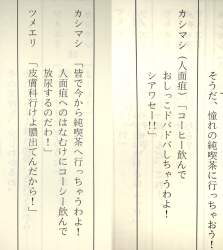 そうだ、憧れの純喫茶に行っちゃおう
カシマシ（人面疽）「コーヒー飲んで
おしっこドバドバしちゃうわよ！
シアワセー！！」
カシマシ　「皆で今から純喫茶へ行っちゃうわよ！
人面疽へのはなむけにコーシー飲んで
放尿するのだわ！」
ツメエリ　「皮膚科行けよ膿出てんだから！」